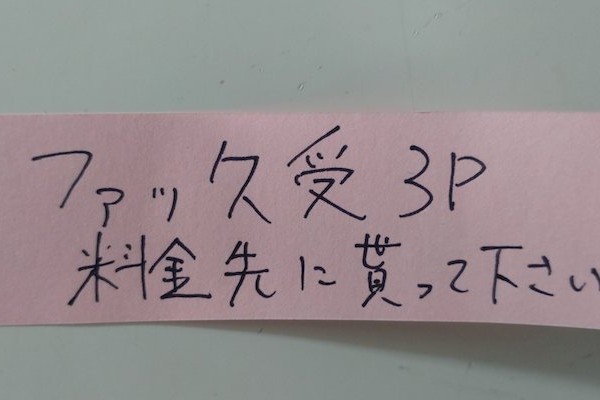 ファック受 3P
料金先に貰って下さい